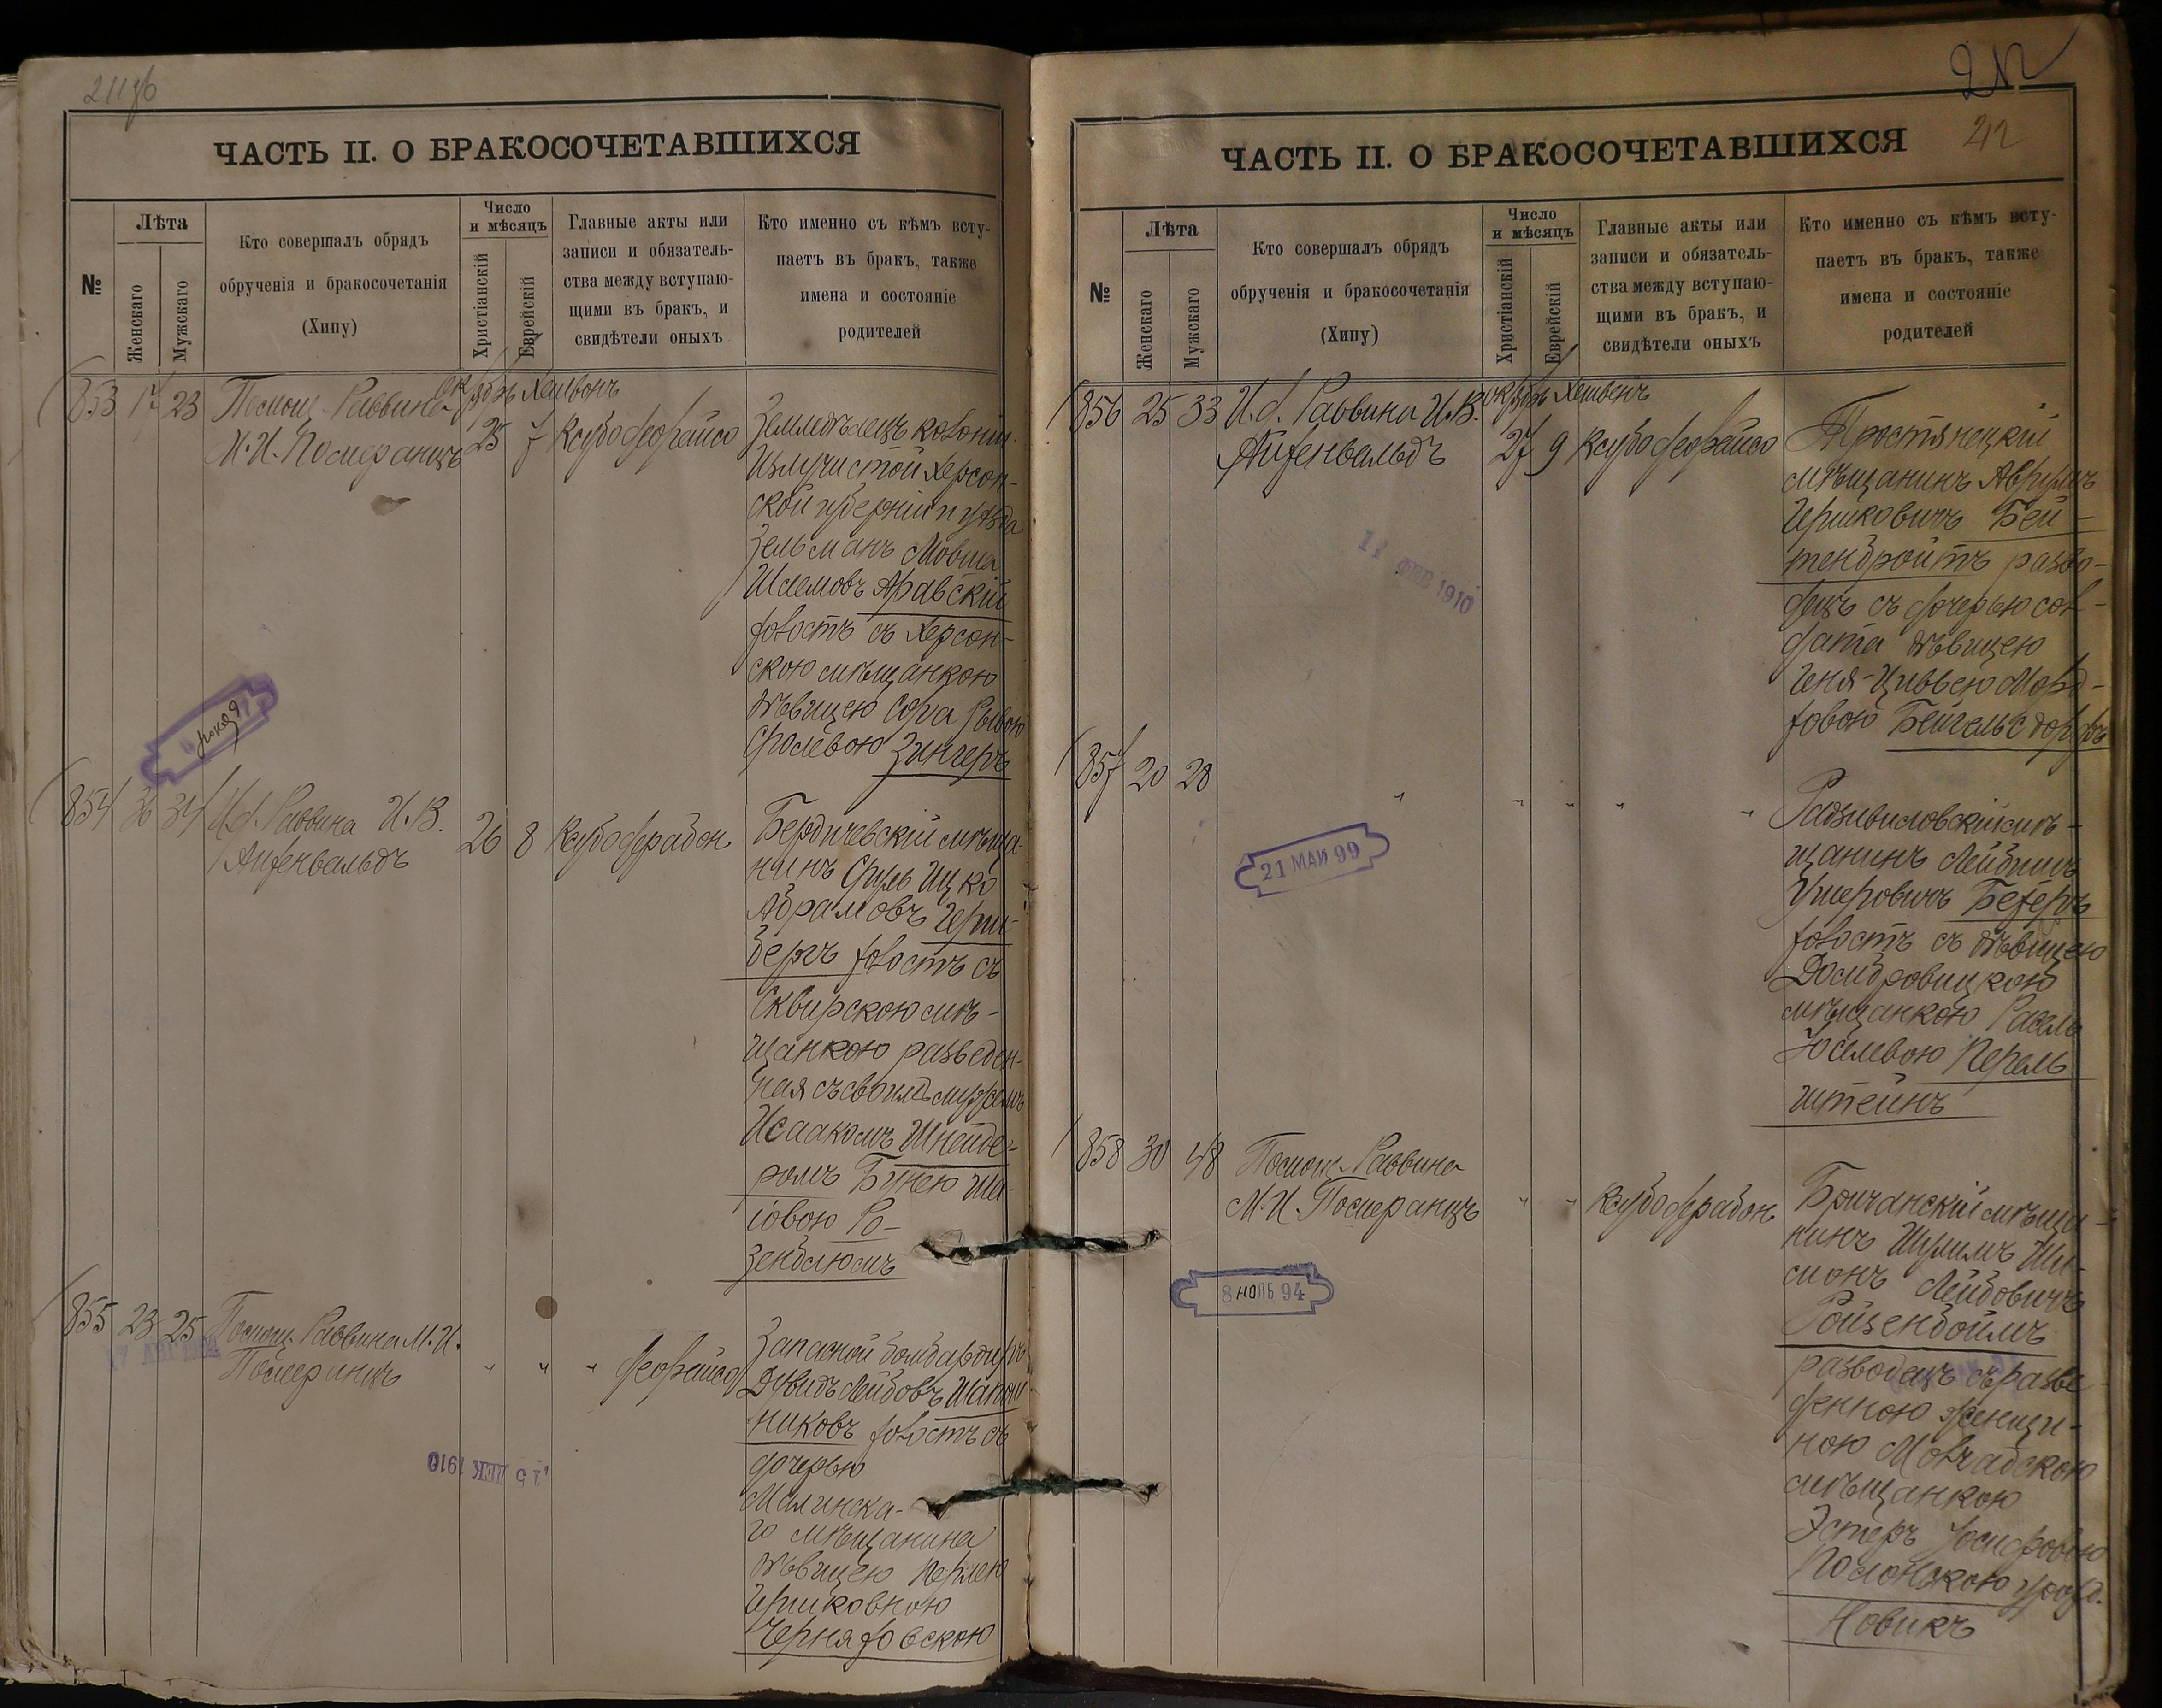 211об
ЧАСТЬ II. О БРАКОСОЧЕТАВШИХСЯ
№
Лѣта
Женскаго
Мужскаго
Кто совершалъ обрядъ
обрученія и бракосочетанія
(Хипу)
Число
и мѣсяцъ
Христіанскій
Еврейскій
Главные акты или
записи и обязатель-
ства между вступаю-
щими въ бракъ, и
свидѣтели оныхъ
Кто именно съ кѣмъ всту-
паетъ въ бракъ, также
имена и состояніе
родителей
853 17 23 Помощ. Раввина
М.И. Померанцъ
25 7
Земледѣлецъ колоніи
Излучистой Херсон-
ской губерніи и уѣзда
Зельманъ Мовша
Шлемовъ Аравскій
холостъ съ Херсон-
скою мѣщанкою
дѣвицею Сура Рывою
Сролевою Зингеръ
854 36 34 И.д. Раввина И.В.
Айзенвальдъ
26 8
Бердичевскій мѣща-
нинъ Сруль Ицко
Абрамовъ Герш-
бергъ холостъ съ
Сквирскою мѣ-
щанкою разведен-
ная съ своимъ мужемъ
Исаакомъ Шнейде-
ромъ Бунею Ша-
іовою Ро-
зенблюмъ
855 23 25 Помощ. Раввина М.И.
Померанцъ
" " "
Запасной бомбардиръ
Дувидъ Лейбовъ Шапош-
никовъ холостъ съ
дочерью
Малинска-
го мѣщанина
дѣвицею Перлею
Гершковною
Черняховскою
15 ДЕК 1910
212
212
ЧАСТЬ II. О БРАКОСОЧЕТАВШИХСЯ
№
Лѣта
Женскаго
Мужскаго
Кто совершалъ обрядъ
обрученія и бракосочетанія
(Хипу)
Число
и мѣсяцъ
Христіанскій
Еврейскій
Главные акты или
записи и обязатель-
ства между вступаю-
щими въ бракъ, и
свидѣтели оныхъ
Кто именно съ кѣмъ всту-
паетъ въ бракъ, также
имена и состояніе
родителей
856 25 33 И.д. Раввина И.В.
Айзенвальдъ
27 9
Тростянецкій
мѣщанинъ Аврумъ
Гершковичъ Бей-
тенбройтъ разво-
децъ съ дочерью сол-
дата дѣвицею
Геня-Цивьею Морд-
ховою Бейгельсдорфъ
11 ФЕВ 1910
857 20 28
" " " " "
Радзивиловскій мѣ-
щанинъ Лейбишъ
Ушеровичъ Безеръ
холостъ съ дѣвицею
Домбровицкою
мѣщанкою Рахль
Юселевою Перель
штейнъ
21 МАЙ 99
858 30 48 Помощ. Раввина
М.И. Померанцъ
" "
Бричанскій мѣща-
нинъ Шулимъ Ши-
монъ Лейбовичъ
Ройзенбоймъ
разводецъ съ разве-
денною женщи-
ною Молчадскою
мѣщанкою
Эстеръ Іосифовою
Полонскою урожд.
Новикъ
8 НОЯБ 94